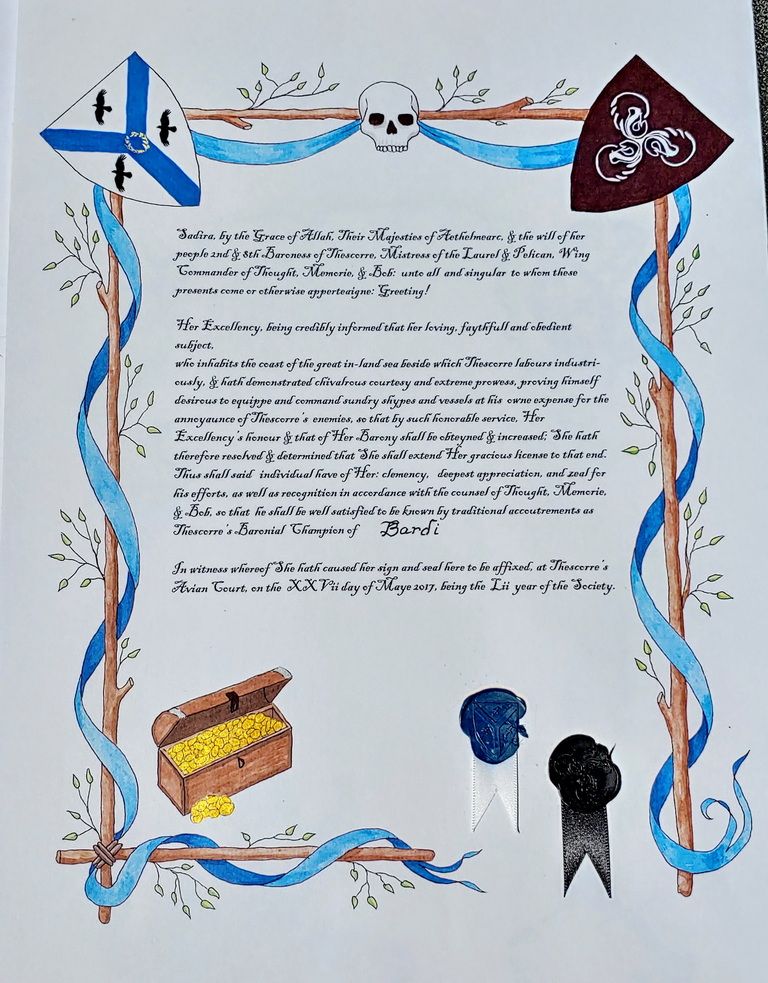 Sadira, by the Grace of Allah, Their Majesties of Aethelmearc, & the will of her
people 2nd & 8th Baroness of Thescorre, Mistress of the Laurel & Pelican, Wing
Commander of Thought, Memorie, & Bob: unto all and singular to whom these
presents come or otherwise apperteaigne: Greeting!
Her Excellency, being credibly informed that her loving, faythfull and obedient
subject,
who inhabits the coast of the great in-land sea beside which Thescorre labours industri-
ously, & hath demonstrated chivalrous courtesy and extreme prowess, proving himself
desirous to equippe and command sundry shypes and vessels at his owne expense for the
annoyaunce of Thescorre's enemies, so that by such honorable service, Her
Excellency's honour & that of Her Barony shall be obteyned & increased; She hath
therefore resolved & determined that She shall extend Her gracious license to that end.
Thus shall said individual have of Her: clemency, deepest appreciation, and zeal for
his efforts, as well as recognition in accordance with the counsel of Thought, Memorie,
& Bob, so that he shall be well satisfied to be known by traditional accoutrements as
Thescorre's Baronial Champion of Bardi
In witness whereof She hath caused her sign and seal here to be affixed, at Thescorre's
Avian Court, on the XXVii day of Maye 2017, being the Lii year of the Society.